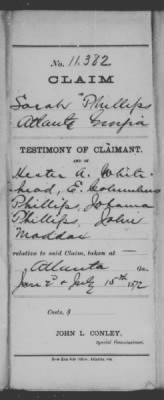 No. 11,382
CLAIM
Sarah Phillips
Atlanta Georgia
TESTIMONY OF CLAIMANT.
AND OF
Hester A. White-
head, E. Columbus
Phillips, Johanna
Phillips, John
Maddox
relative to said Claim, taken at
Atlanta
June 2d & July 15th 1872
Costs, $
JOHN L. CONLEY,
Special Commissioner.